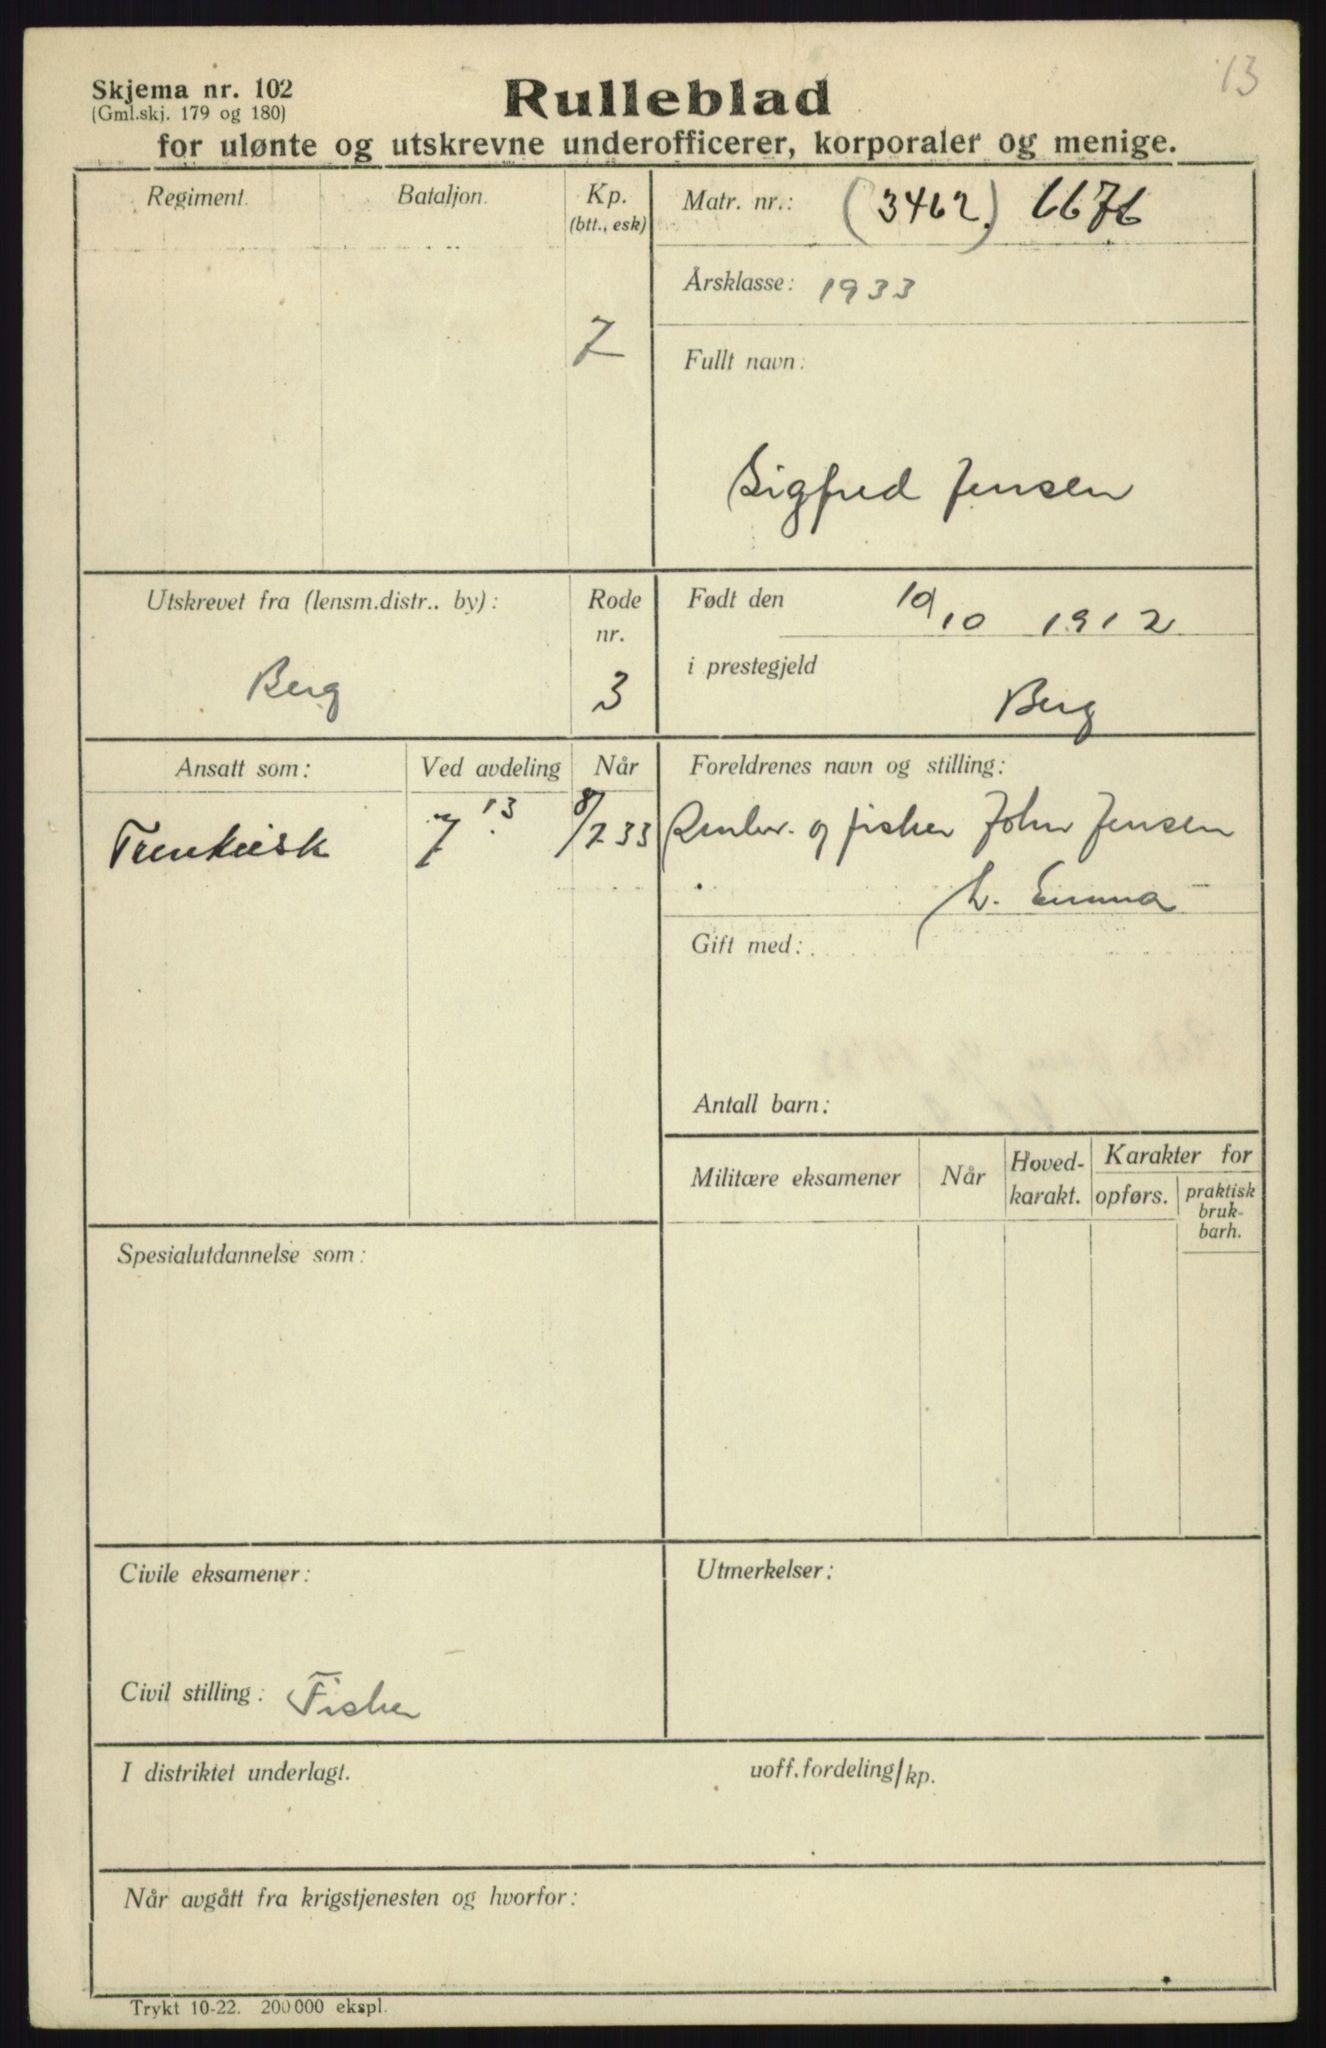 13
Skjema nr. 102
(Gml.skj. 179 og 180)
Rulleblad
for ulønte og utskrevne underofficerer, korporaler og menige.
Regiment.
Bataljon.
Kp.
(btt., esk)
7
Matr. nr.: (3462) 6676
Årsklasse: 1933
Fullt navn:
Sigfred Jensen
Utskrevet fra (lensm.distr.. by):
Berg
Rode
nr.
3
Født den 10/10 1912
i prestegjeld
Berg
Ansatt som:
Ved avdeling
Når
7 13
8/7 33
Foreldrenes navn og stilling:
og fisker John Jensen
h. Emma
Gift med:
Antall barn:
Militære eksamener
Når
Hoved-
karakt.
Karakter for
opførs.
praktisk
bruk-
barh.
Spesialutdannelse som:
Civile eksamener:
Civil stilling: Fisker
Utmerkelser:
I distriktet underlagt. uoff.fordeling/kp.
Når avgått fra krigstjenesten og hvorfor:
Trykt 10-22. 200000 ekspl.